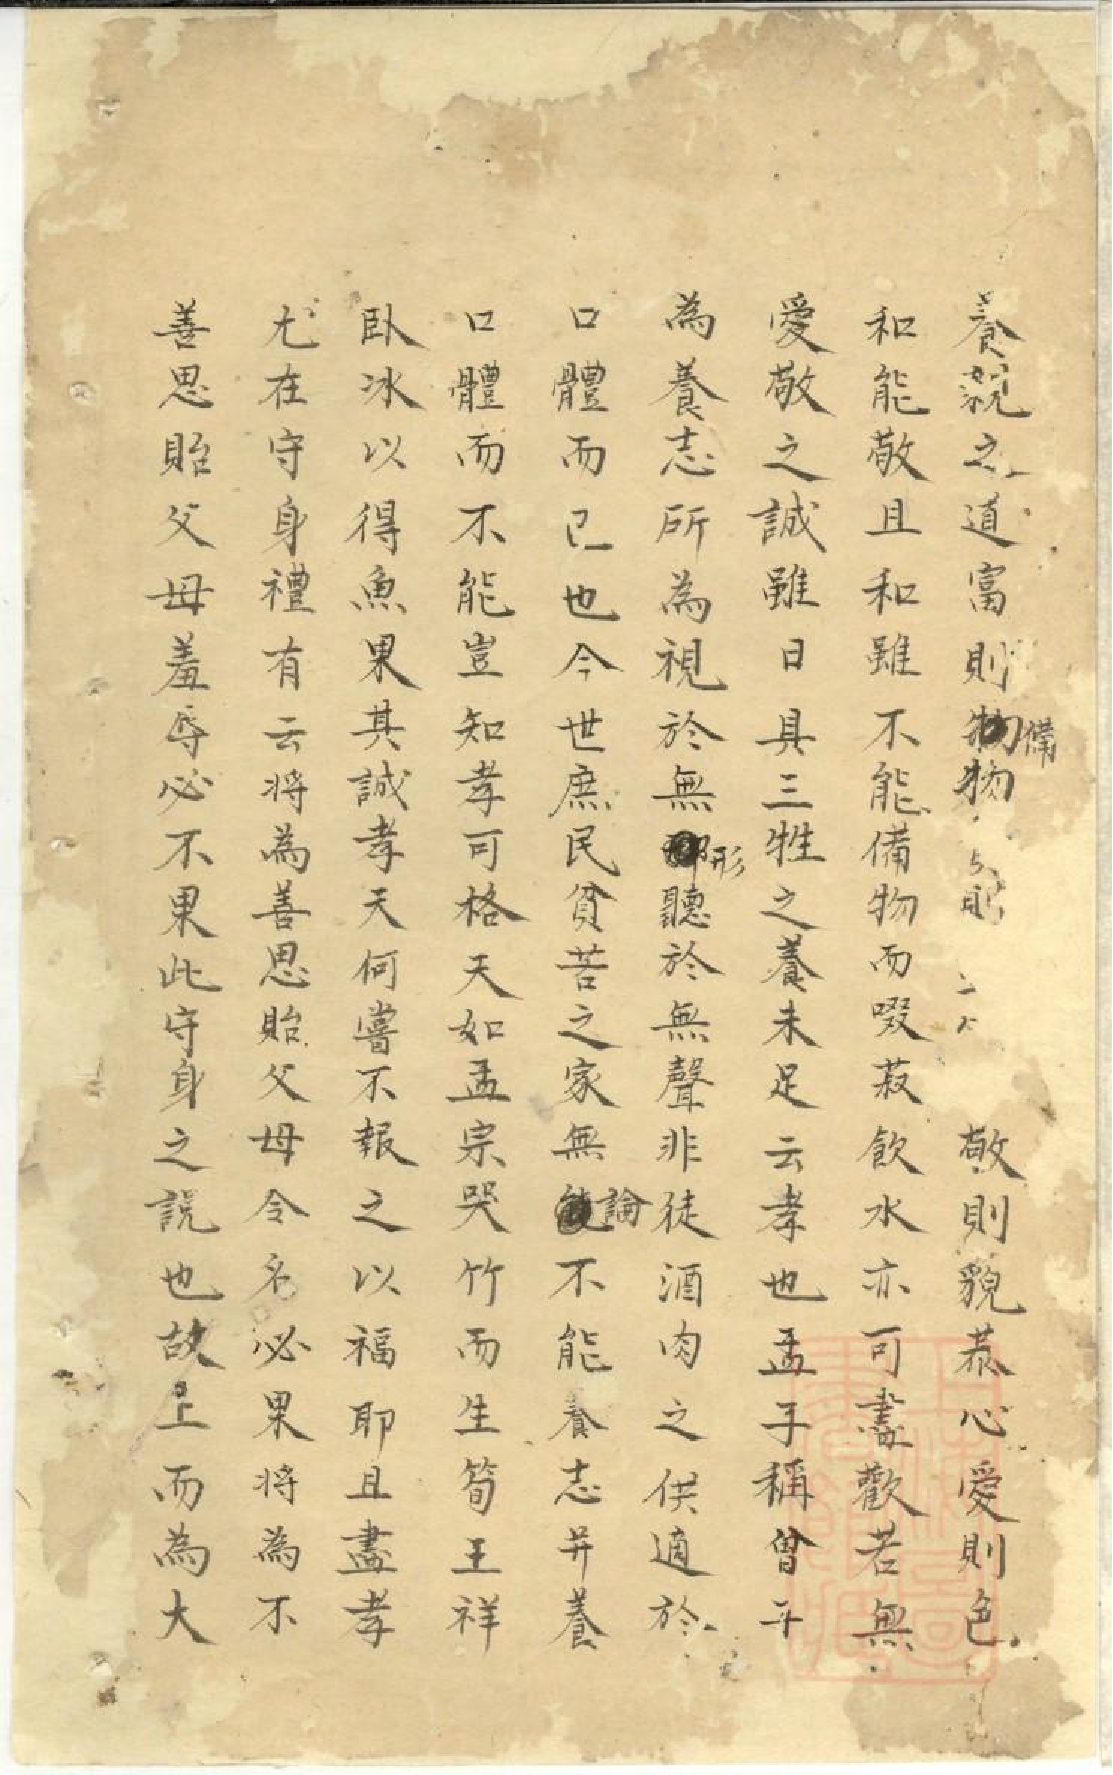 養親之道富則備物敬則貌恭心愛則色
和能敬且和雖不能備物而啜菽飲水亦可盡歡若無
愛敬之誠雖日具三牲之養未足云孝也孟子稱曾子
為養志所為視於無形聽於無聲非徒酒肉之供適於
口體而已也今世庶民貧苦之家無論不能養志并養
口體而不能豈知孝可格天如孟宗哭竹而生筍王祥
臥冰以得魚果其誠孝天何嘗不報之以福耶且盡孝
尤在守身禮有云將為善思貽父母令名必果將為不
善思貽父母羞辱必不果此守身之説也故上而為大